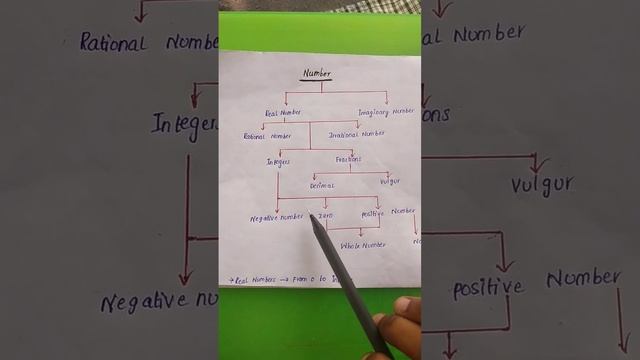 Number
Real Number Imaginary Number
Rational Number Irrational Number
Integers Fractions
Decimal Vulgur
Negative number Zero Positive Number
Whole Number
→ Real Numbers → From 0 to
Rational Number
Integers
Negative
Number
Vulgur
positive Number